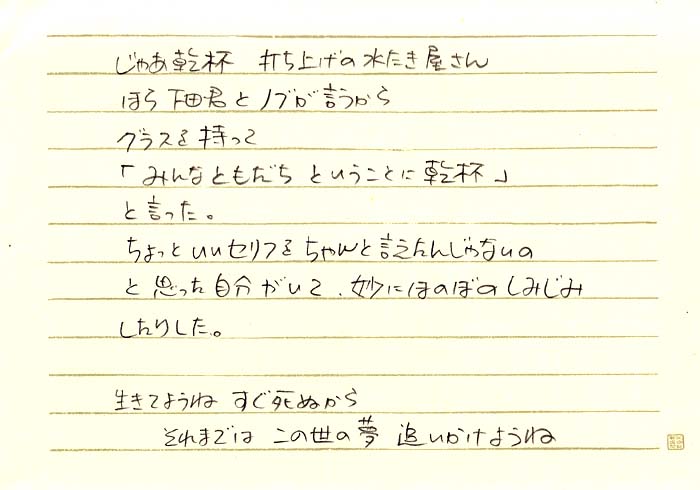 じゃあ乾杯 打ち上げの水たき屋さん
ほら下田君とノブが言うから
グラスを持って
「みんなともだち ということに乾杯」
と言った。
ちょっといいセリフをちゃんと言えたんじゃないの
と思った自分がいて、妙にほのぼのしみじみ
したりした。
生きてようね すぐ死ぬから
それまでは この世の夢 追いかけようね